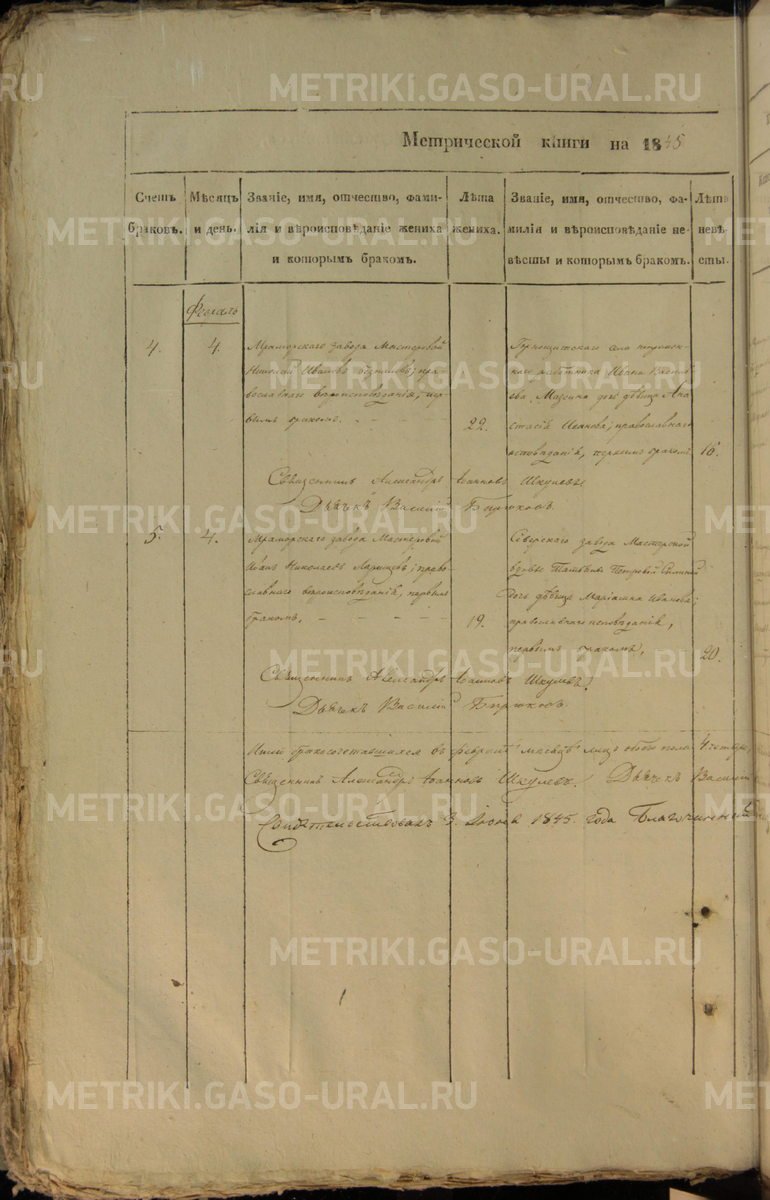 METRIKI.GASO-URAL.RU
Метрической книги на 1845
Счетъ браковъ.
Мѣсяцъ и день.
Званіе, имя, отчество, фами-
лія и вѣроисповѣданіе жениха
и которымъ бракомъ.
Лѣта жениха.
Званіе, имя, отчество, фа-
милія и вѣроисповѣданіе не-
вѣсты и которымъ бракомъ.
Лѣта невѣ-
сты.
4.
4.
Мраморскаго завода Мастеровой
Иванов
православнаго вероисповѣданія, пер-
вымъ бракомъ.
22.
Горнощитскаго села
работника Ивана
дочь дѣвица Ана-
стасія Иванова; православнаго
исповѣданія, первымъ бракомъ
16.
Священникъ Александръ Іоанновъ Шкулевъ.
Дьячекъ Василій Бирюковъ.
5.
4.
Мраморскаго завода Мастеровой
Иванъ Николаевъ Ларинцевъ; право-
славнаго вероисповѣданія, первымъ
бракомъ,
19.
Сѣверскаго завода Мастерской
Петровой
дочь дѣвица Маріанна Иванова;
православнаго исповѣданія,
первымъ бракомъ,
20.
Священникъ Александръ Іоанновъ Шкулевъ.
Дьячекъ Василій Бирюковъ
бракосочетавшихся въ февралѣ мѣсяцѣ лицъ обоего пола четыре
Священникъ Александръ Іоанновъ Шкулевъ. Дьячекъ Василій
Свидѣтельствовалъ 3. 1845. года Благочинный